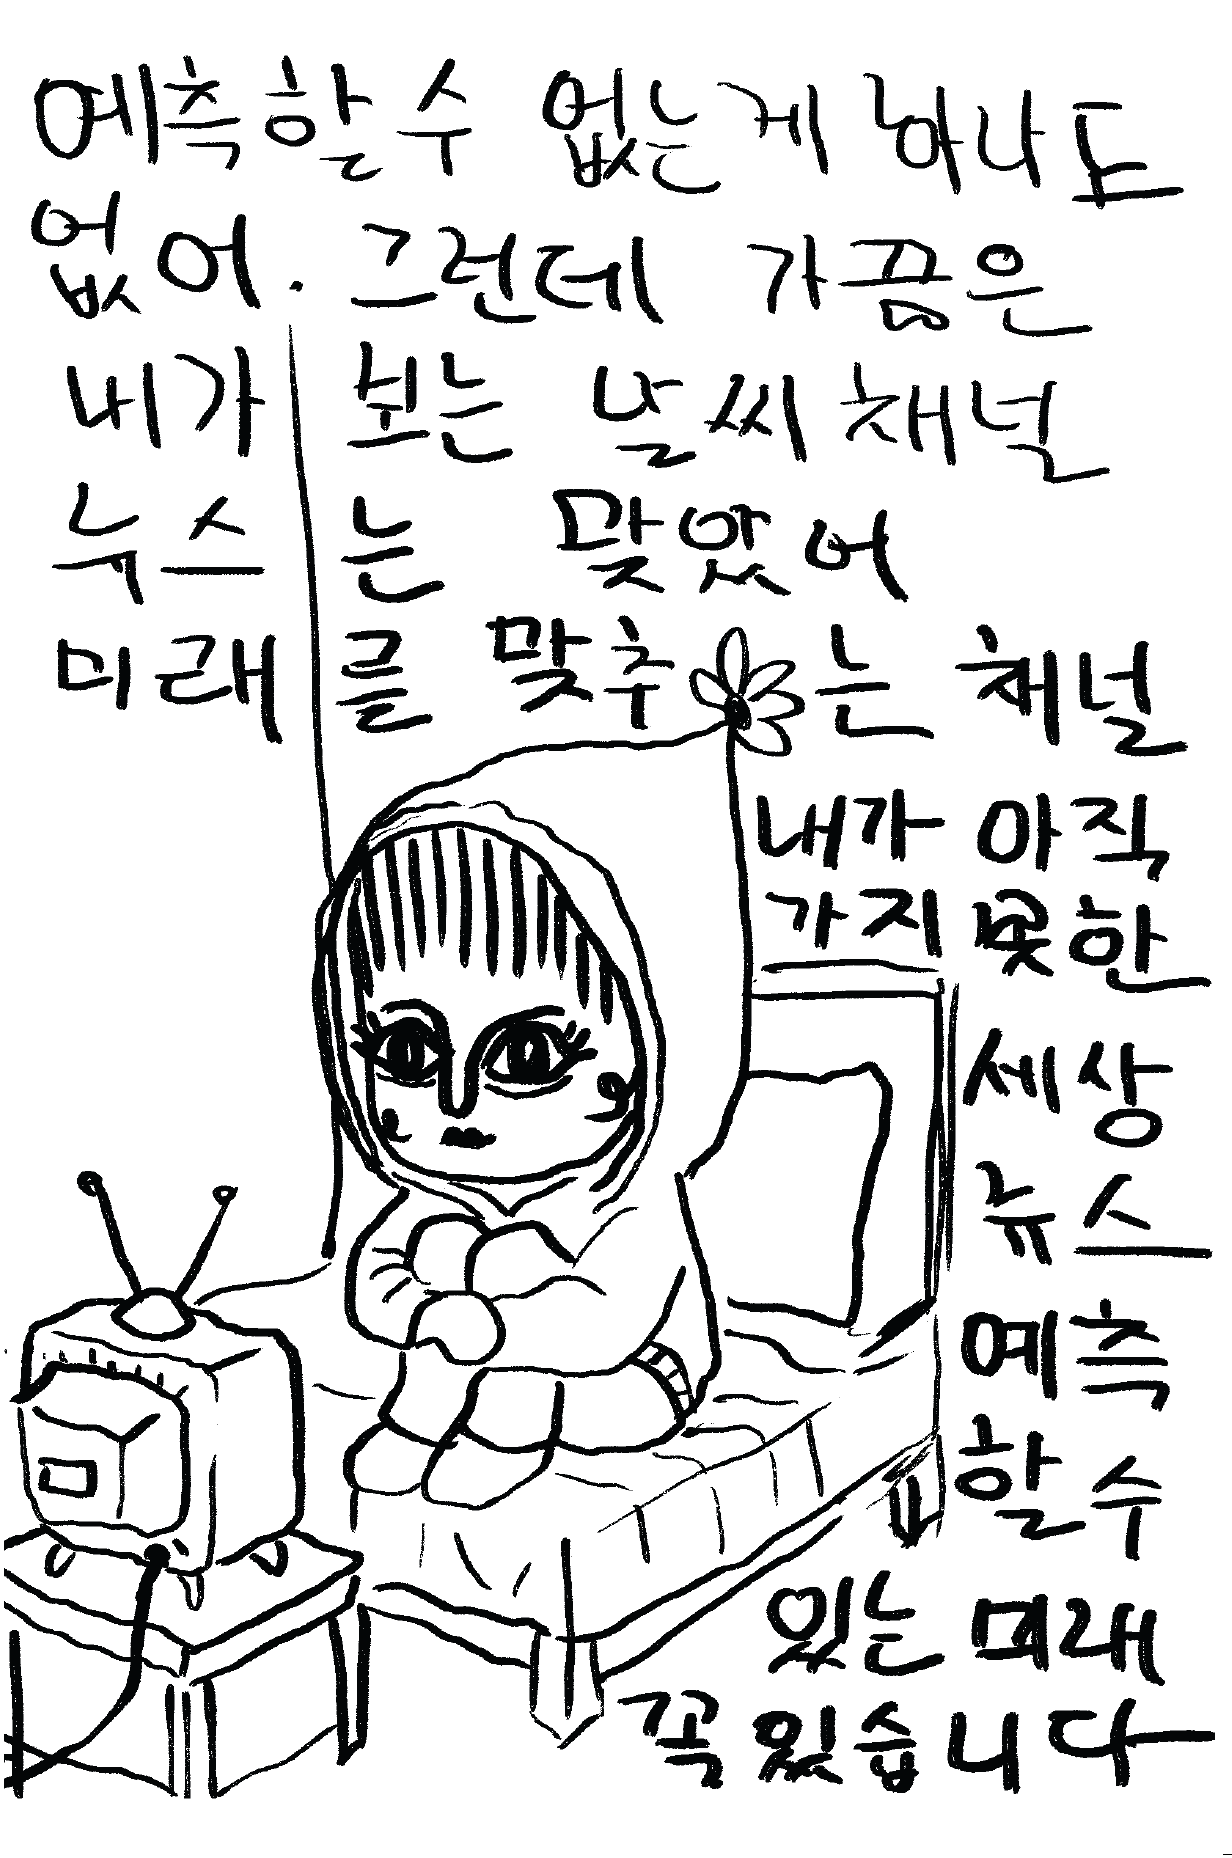 예측할 수 없는게 하나도
없어. 그런데 가끔은
내가 보는 날씨 채널
뉴스는 맞았어
미래를 맞추는 채널
내가 아직
가지 못한
세상
뉴스
예측
할 수
있는 미래
꼭 있습니다